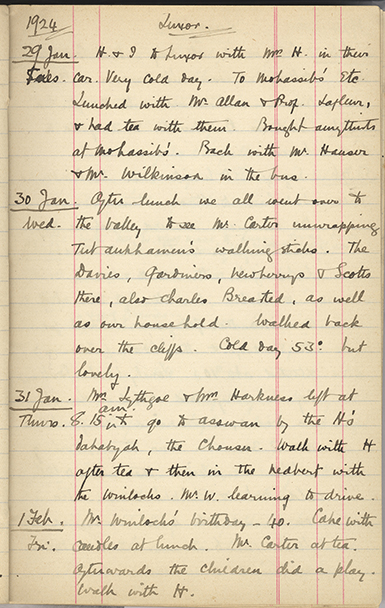 1924 Luxor.
29 Jan. H. & I to Luxor with Mr H. in their
Tues. car. Very cold day. To Mohassib's Etc.
Lunched with Mr. Allan & Prof. Lafleur,
& had tea with them. Bought amethysts
at Mohassib's. Back with Mr. Hauser
& Mr. Wilkinson in the bus.
30 Jan. After lunch we all went over to
Wed. the valley to see Mr. Carter unwrapping
Tut ankhamen's walking sticks. The
Davies, Gardiners, Newberrys & Scotts
there, also Charles Breasted, as well
as our household. Walked back
over the cliffs. Cold day 53° but
lovely.
31 Jan. Mr. Lythgoe & Mrs Harkness left at
Thurs. 8.15 am. to go to Asswan by the H's
dahabyah, the Chonsu. Walk with H
after tea & then in the
with
the Winlocks. Mr. W. learning to drive.
1 Feb. Mr. Winlock's birthday - 40. Cake with
Fri. candles at lunch. Mr. Carter at tea.
Afterwards the children did a play.
Walk with H.